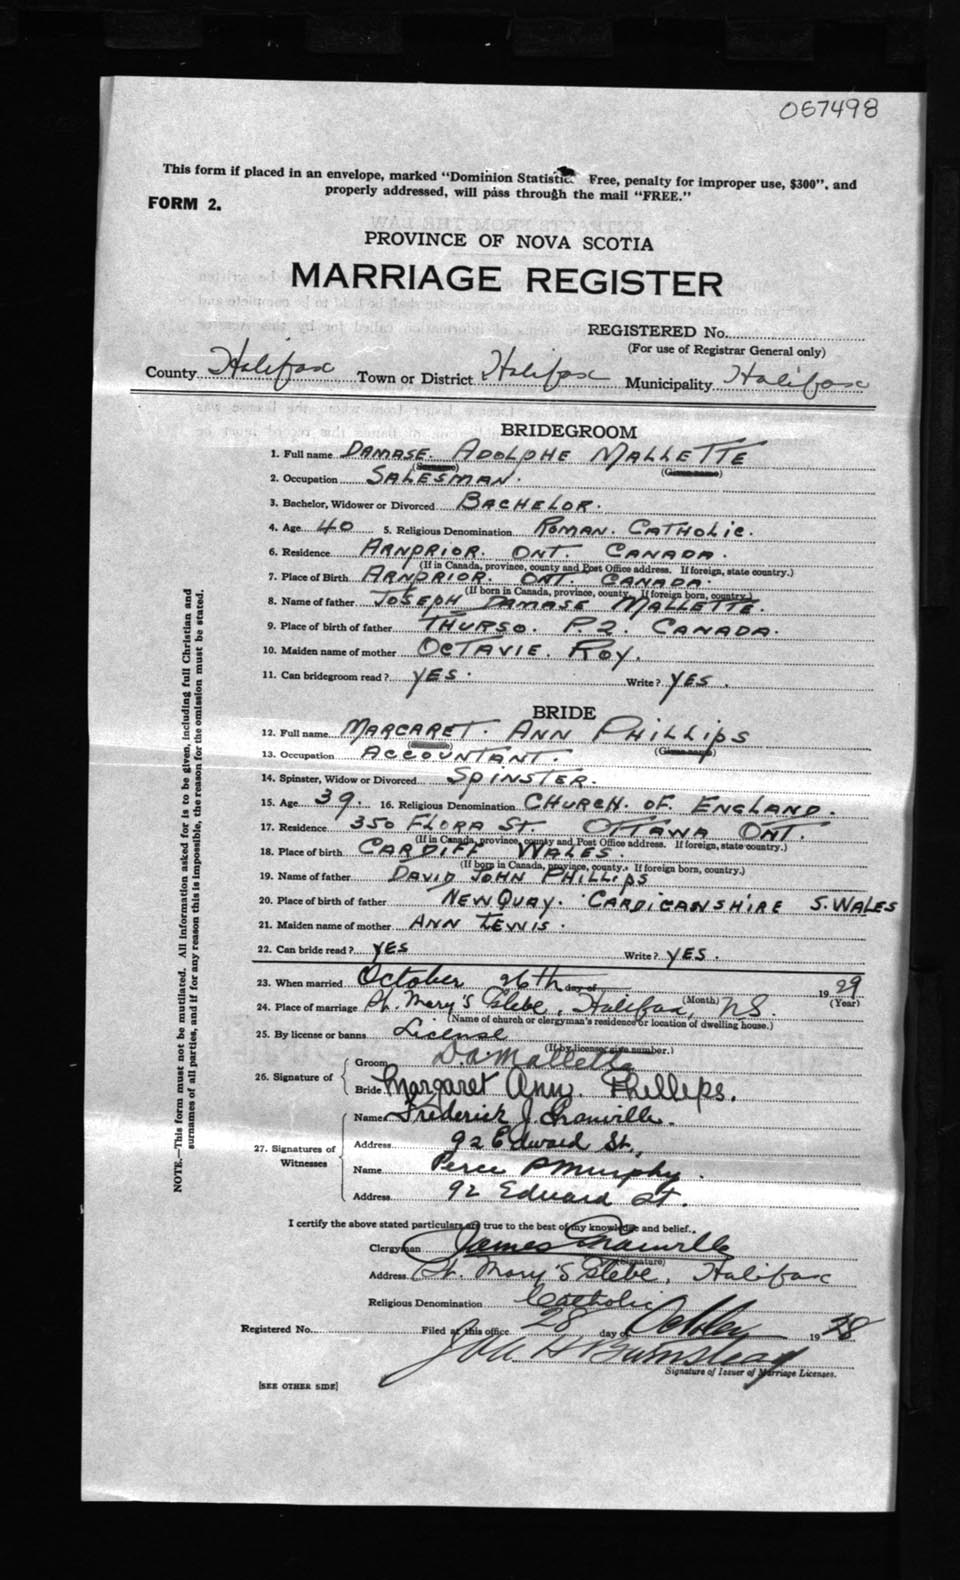 067498
This form if placed in an envelope, marked "Dominion Statistic. Free, penalty for improper use, $300", and
properly addressed, will pass through the mail "FREE."
FORM 2.
PROVINCE OF NOVA SCOTIA
MARRIAGE REGISTER
REGISTERED No.
(For use of Registrar General only)
County Halifax Town or District Halifax Municipality Halifax
BRIDEGROOM
1. Full name DAMASE. ADOLPHE MALLETTE
(Surname) (Given name)
2. Occupation SALESMAN.
3. Bachelor, Widower or Divorced BACHELOR.
4. Age 40 5. Religious Denomination ROMAN. CATHOLIC.
6. Residence ARNPRIOR. ONT. CANADA.
(If in Canada, province, county and Post Office address. If foreign, state country.)
7. Place of Birth ARNPRIOR. ONT. CANADA.
(If born in Canada, province, county, If foreign born, country.)
8. Name of father JOSEPH DAMASE MALLETTE.
9. Place of birth of father THURSO. P.Q. CANADA.
10. Maiden name of mother OCTAVIE. ROY.
11. Can bridegroom read? YES. Write? YES.
BRIDE
12. Full name MARGARET. ANN PHILLIPS
(Surname) (Given name)
13. Occupation ACCOUNTANT.
14. Spinster, Widow or Divorced SPINSTER.
15. Age 39. 16. Religious Denomination CHURCH. OF. ENGLAND.
17. Residence 350 FLORA ST. OTTAWA ONT.
(If in Canada, province, county and Post Office address. If foreign, state country.)
18. Place of birth CARDIFF WALES.
(If born in Canada, province, county. If foreign born, country.)
19. Name of father DAVID JOHN PHILLIPS
20. Place of birth of father NEWQUAY. CARDIGANSHIRE S. WALES
21. Maiden name of mother ANN LEWIS.
22. Can bride read? YES Write? YES.
23. When married October 26th day of 1929
(Month) (Year)
24. Place of marriage St. Mary's Glebe, Halifax, N.S.
(Name of church or clergyman's residence or location of dwelling house.)
25. By license or banns License
(If by license give number.)
26. Signature of Groom D. A. Mallette
Bride Margaret Ann. Phillips.
27. Signatures of Witnesses Name Frederick J. Granville.
Address 92 Edward St.,
Name P. Murphy.
Address 92 Edward St.
I certify the above stated particulars are true to the best of my knowledge and belief.
Clergyman James Granville
(Signature)
Address St. Mary's Glebe, Halifax
Religious Denomination Catholic
Registered No. Filed at this office 28 day of October 19
Signature of Issuer of Marriage Licenses.
[SEE OTHER SIDE]
NOTE.—This form must not be mutilated. All information asked for is to be given, including full Christian and
surnames of all parties, and if for any reason this is impossible, the reason for the omission must be stated.